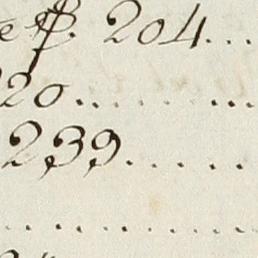 204...
20..........
239......